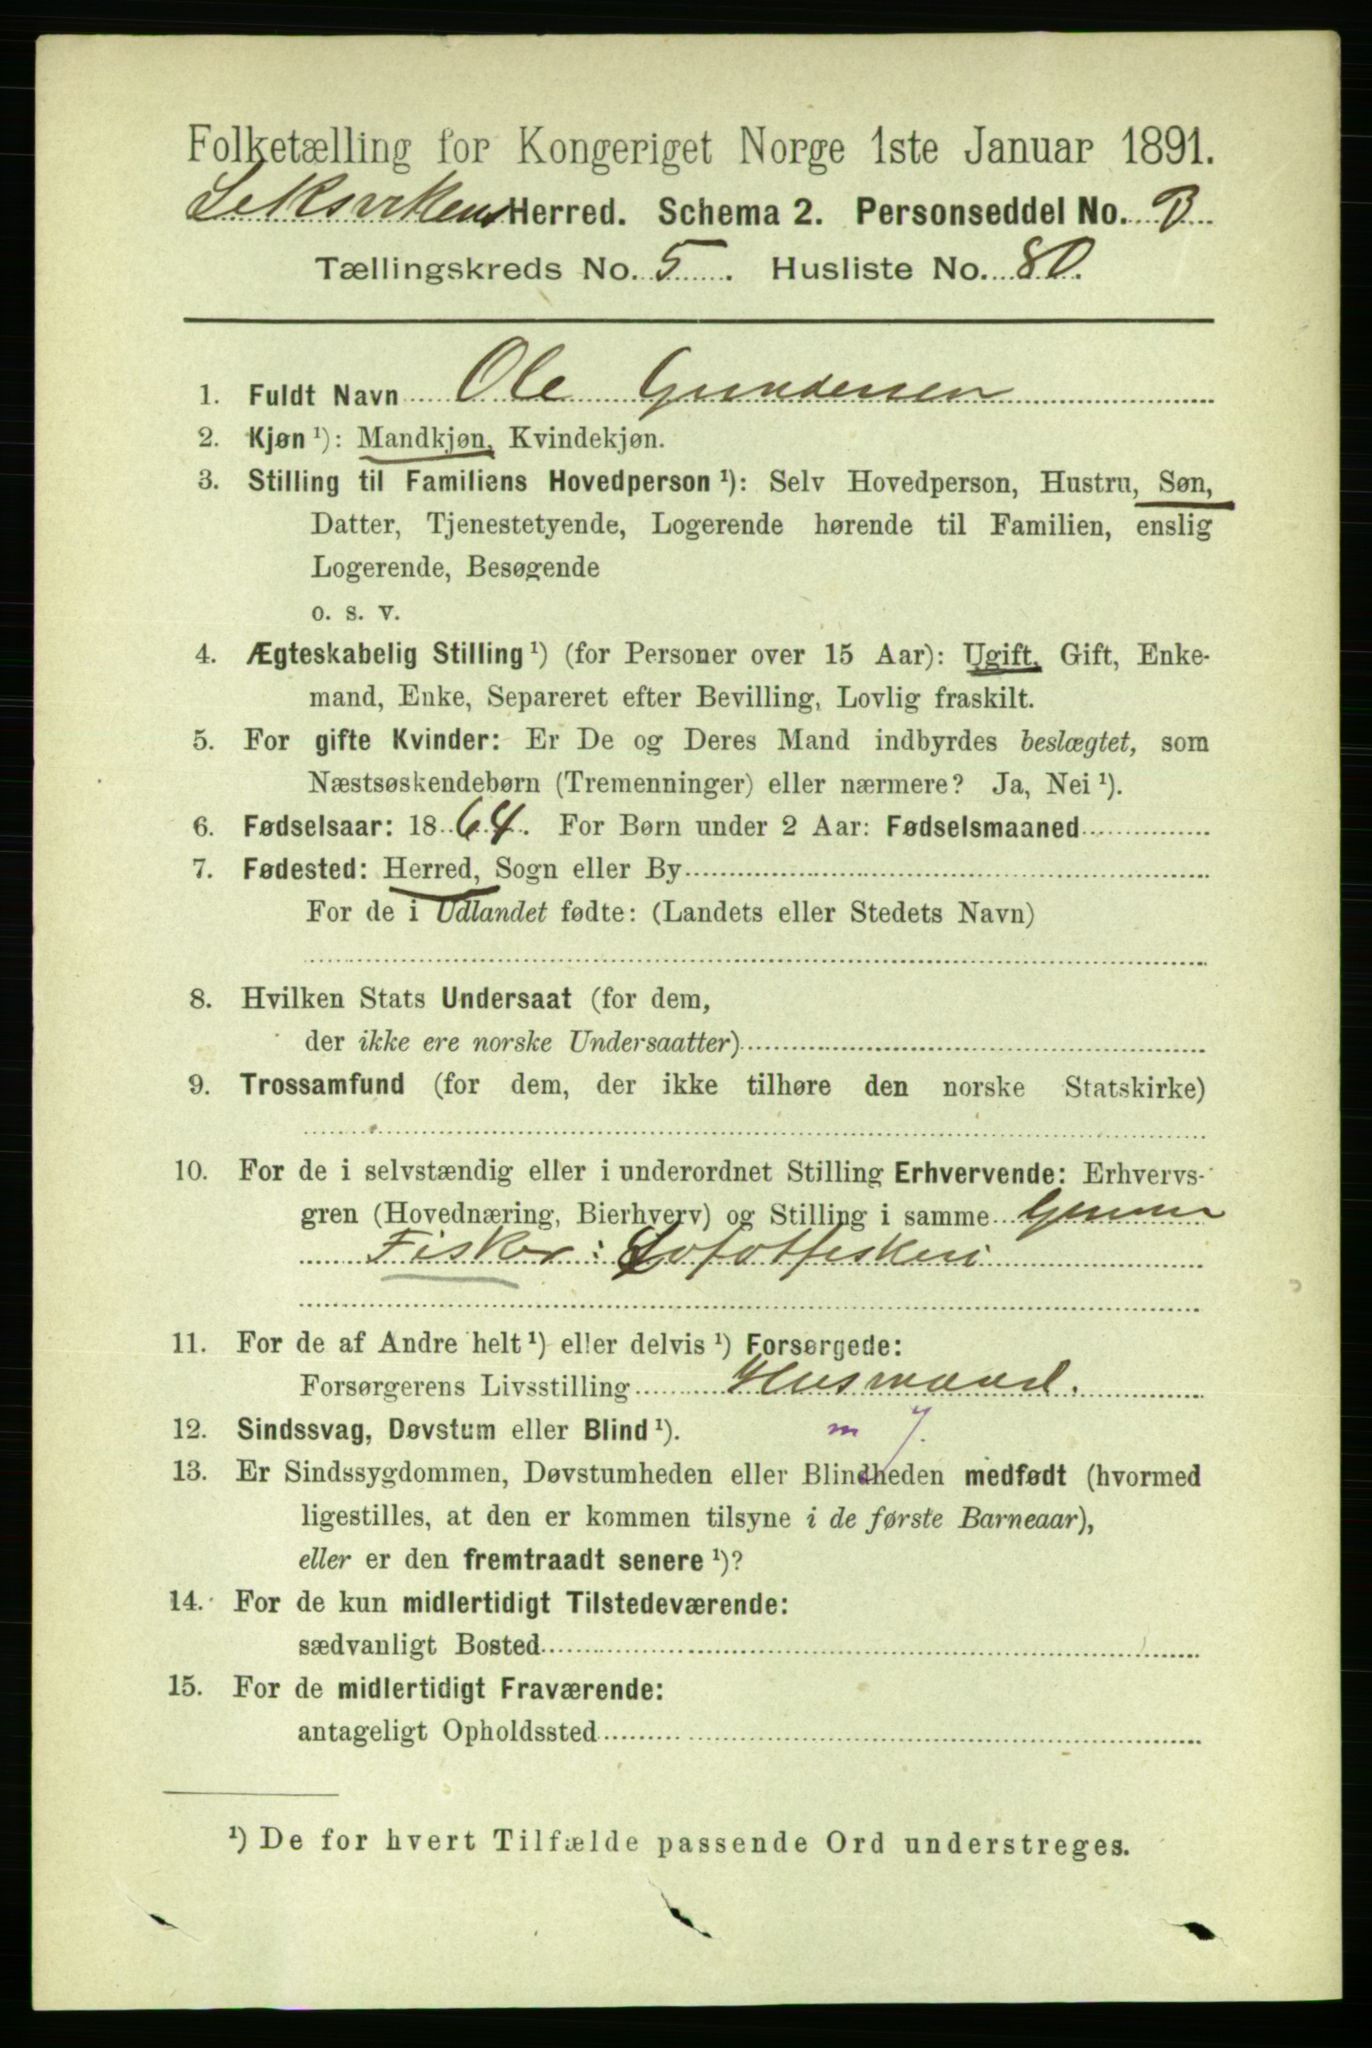 Folketælling for Kongeriget Norge 1ste Januar 1891.
Leksvikens Herred. Schema 2. Personseddel No. 3
Tællingskreds No. 5. Husliste No. 80.
1. Fuldt Navn Ole Gundersen
2. Kjøn ¹): Mandkjøn, Kvindekjøn.
3. Stilling til Familiens Hovedperson ¹): Selv Hovedperson, Hustru, Søn,
Datter, Tjenestetyende, Logerende hørende til Familien, enslig
Logerende, Besøgende
o. s. v.
4. Ægteskabelig Stilling ¹) (for Personer over 15 Aar): Ugift, Gift, Enke-
mand, Enke, Separeret efter Bevilling, Lovlig fraskilt.
5. For gifte Kvinder: Er De og Deres Mand indbyrdes beslægtet, som
Næstsøskendebørn (Tremenninger) eller nærmere? Ja, Nei ¹).
6. Fødselsaar: 1864. For Børn under 2 Aar: Fødselsmaaned
7. Fødested: Herred, Sogn eller By
For de i Udlandet fødte: (Landets eller Stedets Navn)
8. Hvilken Stats Undersaat (for dem,
der ikke ere norske Undersaatter)
9. Trossamfund (for dem, der ikke tilhøre den norske Statskirke)
10. For de i selvstændig eller i underordnet Stilling Erhvervende: Erhvervs-
gren (Hovednæring, Bierhverv) og Stilling i samme
Fisker: Lofotfiskeri
11. For de af Andre helt ¹) eller delvis ¹) Forsørgede:
Forsørgerens Livsstilling Husmand.
12. Sindssvag, Døvstum eller Blind ¹). m 7.
13. Er Sindssygdommen, Døvstumheden eller Blindheden medfødt (hvormed
ligestilles, at den er kommen tilsyne i de første Barneaar),
eller er den fremtraadt senere ¹)?
14. For de kun midlertidigt Tilstedeværende:
sædvanligt Bosted
15. For de midlertidigt Fraværende:
antageligt Opholdssted
¹) De for hvert Tilfælde passende Ord understreges.